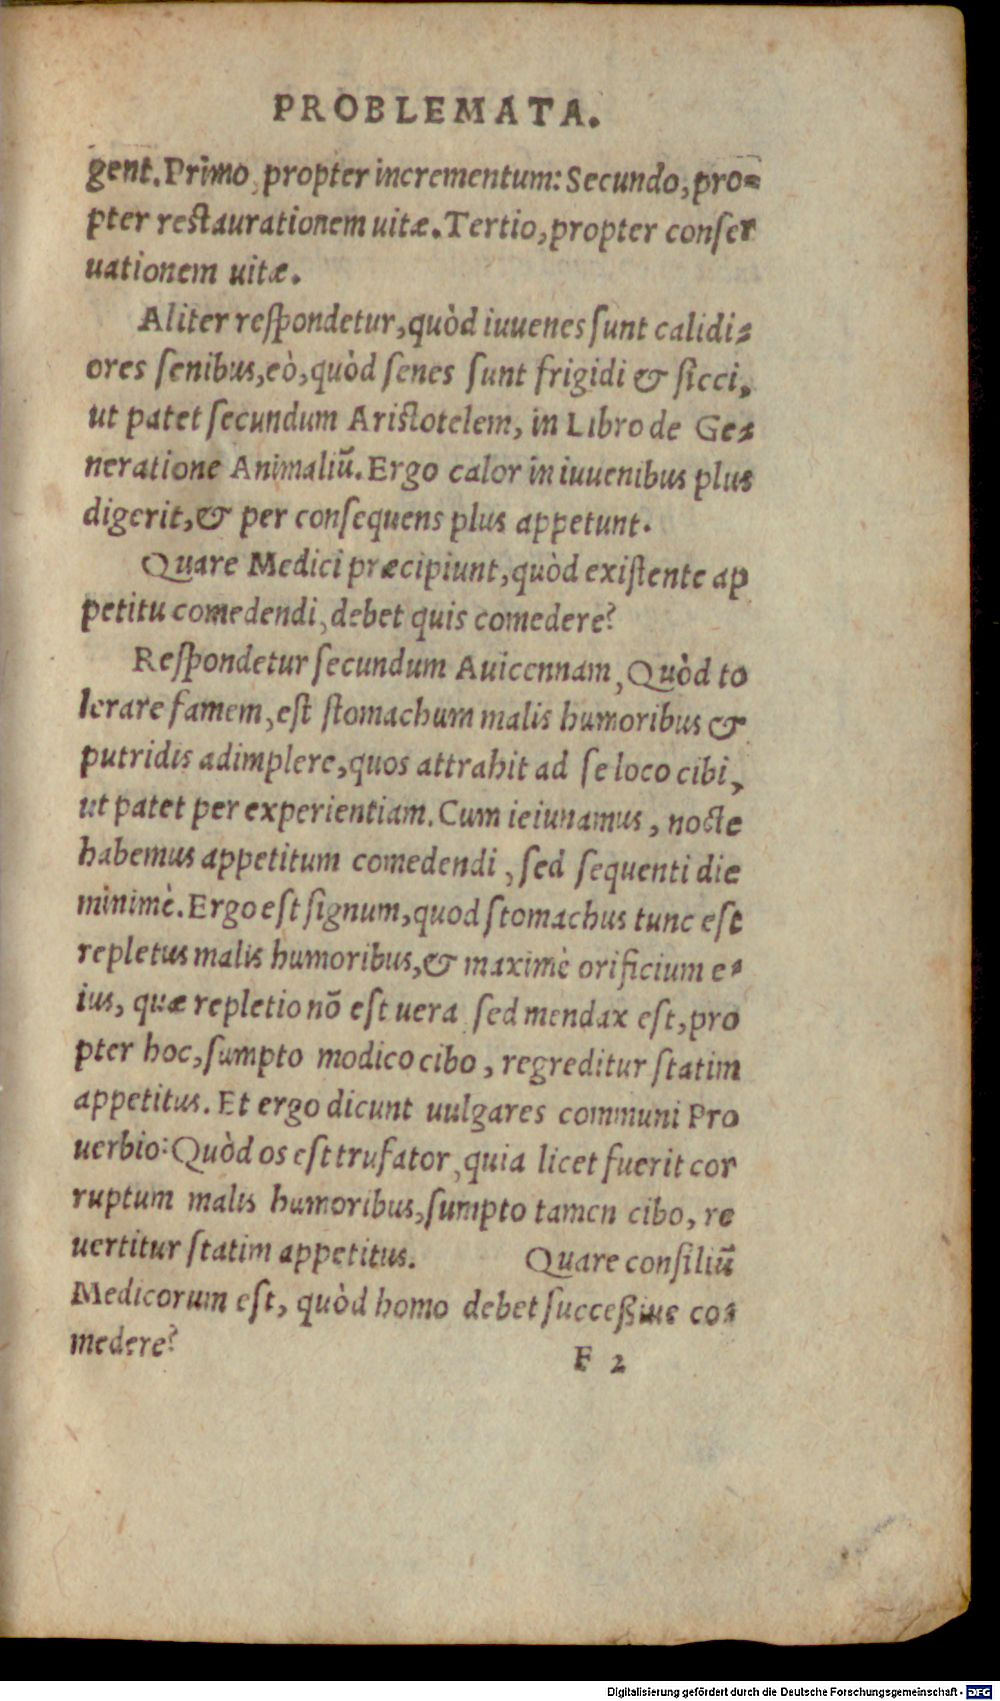 PROBLEMATA.
gent. Primo, propter incrementum: Secundo, pro=
pter restaurationem uitæ. Tertio, propter conser
uationem uitæ.
Aliter respondetur, quòd iuuenes sunt calidi=
ores senibus, eò, quòd senes sunt frigidi & sicci,
ut patet secundum Aristotelem, in Libro de Ge=
neratione Animaliū. Ergo calor in iuuenibus plus
digerit, & per consequens plus appetunt.
Quare Medici præcipiunt, quòd existente ap
petitu comedendi, debet quis comedere?
Respondetur secundum Auicennam, Quòd to
lerare famem, est stomachum malis humoribus &
putridis adimplere, quos attrahit ad se loco cibi,
ut patet per experientiam. Cum ieiunamus, nocte
habemus appetitum comedendi, sed sequenti die
minimè. Ergo est signum, quod stomachus tunc est
repletus malis humoribus, & maximè orificium e=
ius, quæ repletio nō est uera sed mendax est, pro
pter hoc, sumpto modico cibo, regreditur statim
appetitus. Et ergo dicunt uulgares communi Pro
uerbio: Quòd os est trufator, quia licet fuerit cor
ruptum malis humoribus, sumpto tamen cibo, re
uertitur statim appetitus. Quare consiliū
Medicorum est, quòd homo debet succeßiue co=
medere?
F 2
Digitalisierung gefördert durch die Deutsche Forschungsgemeinschaft - DFG